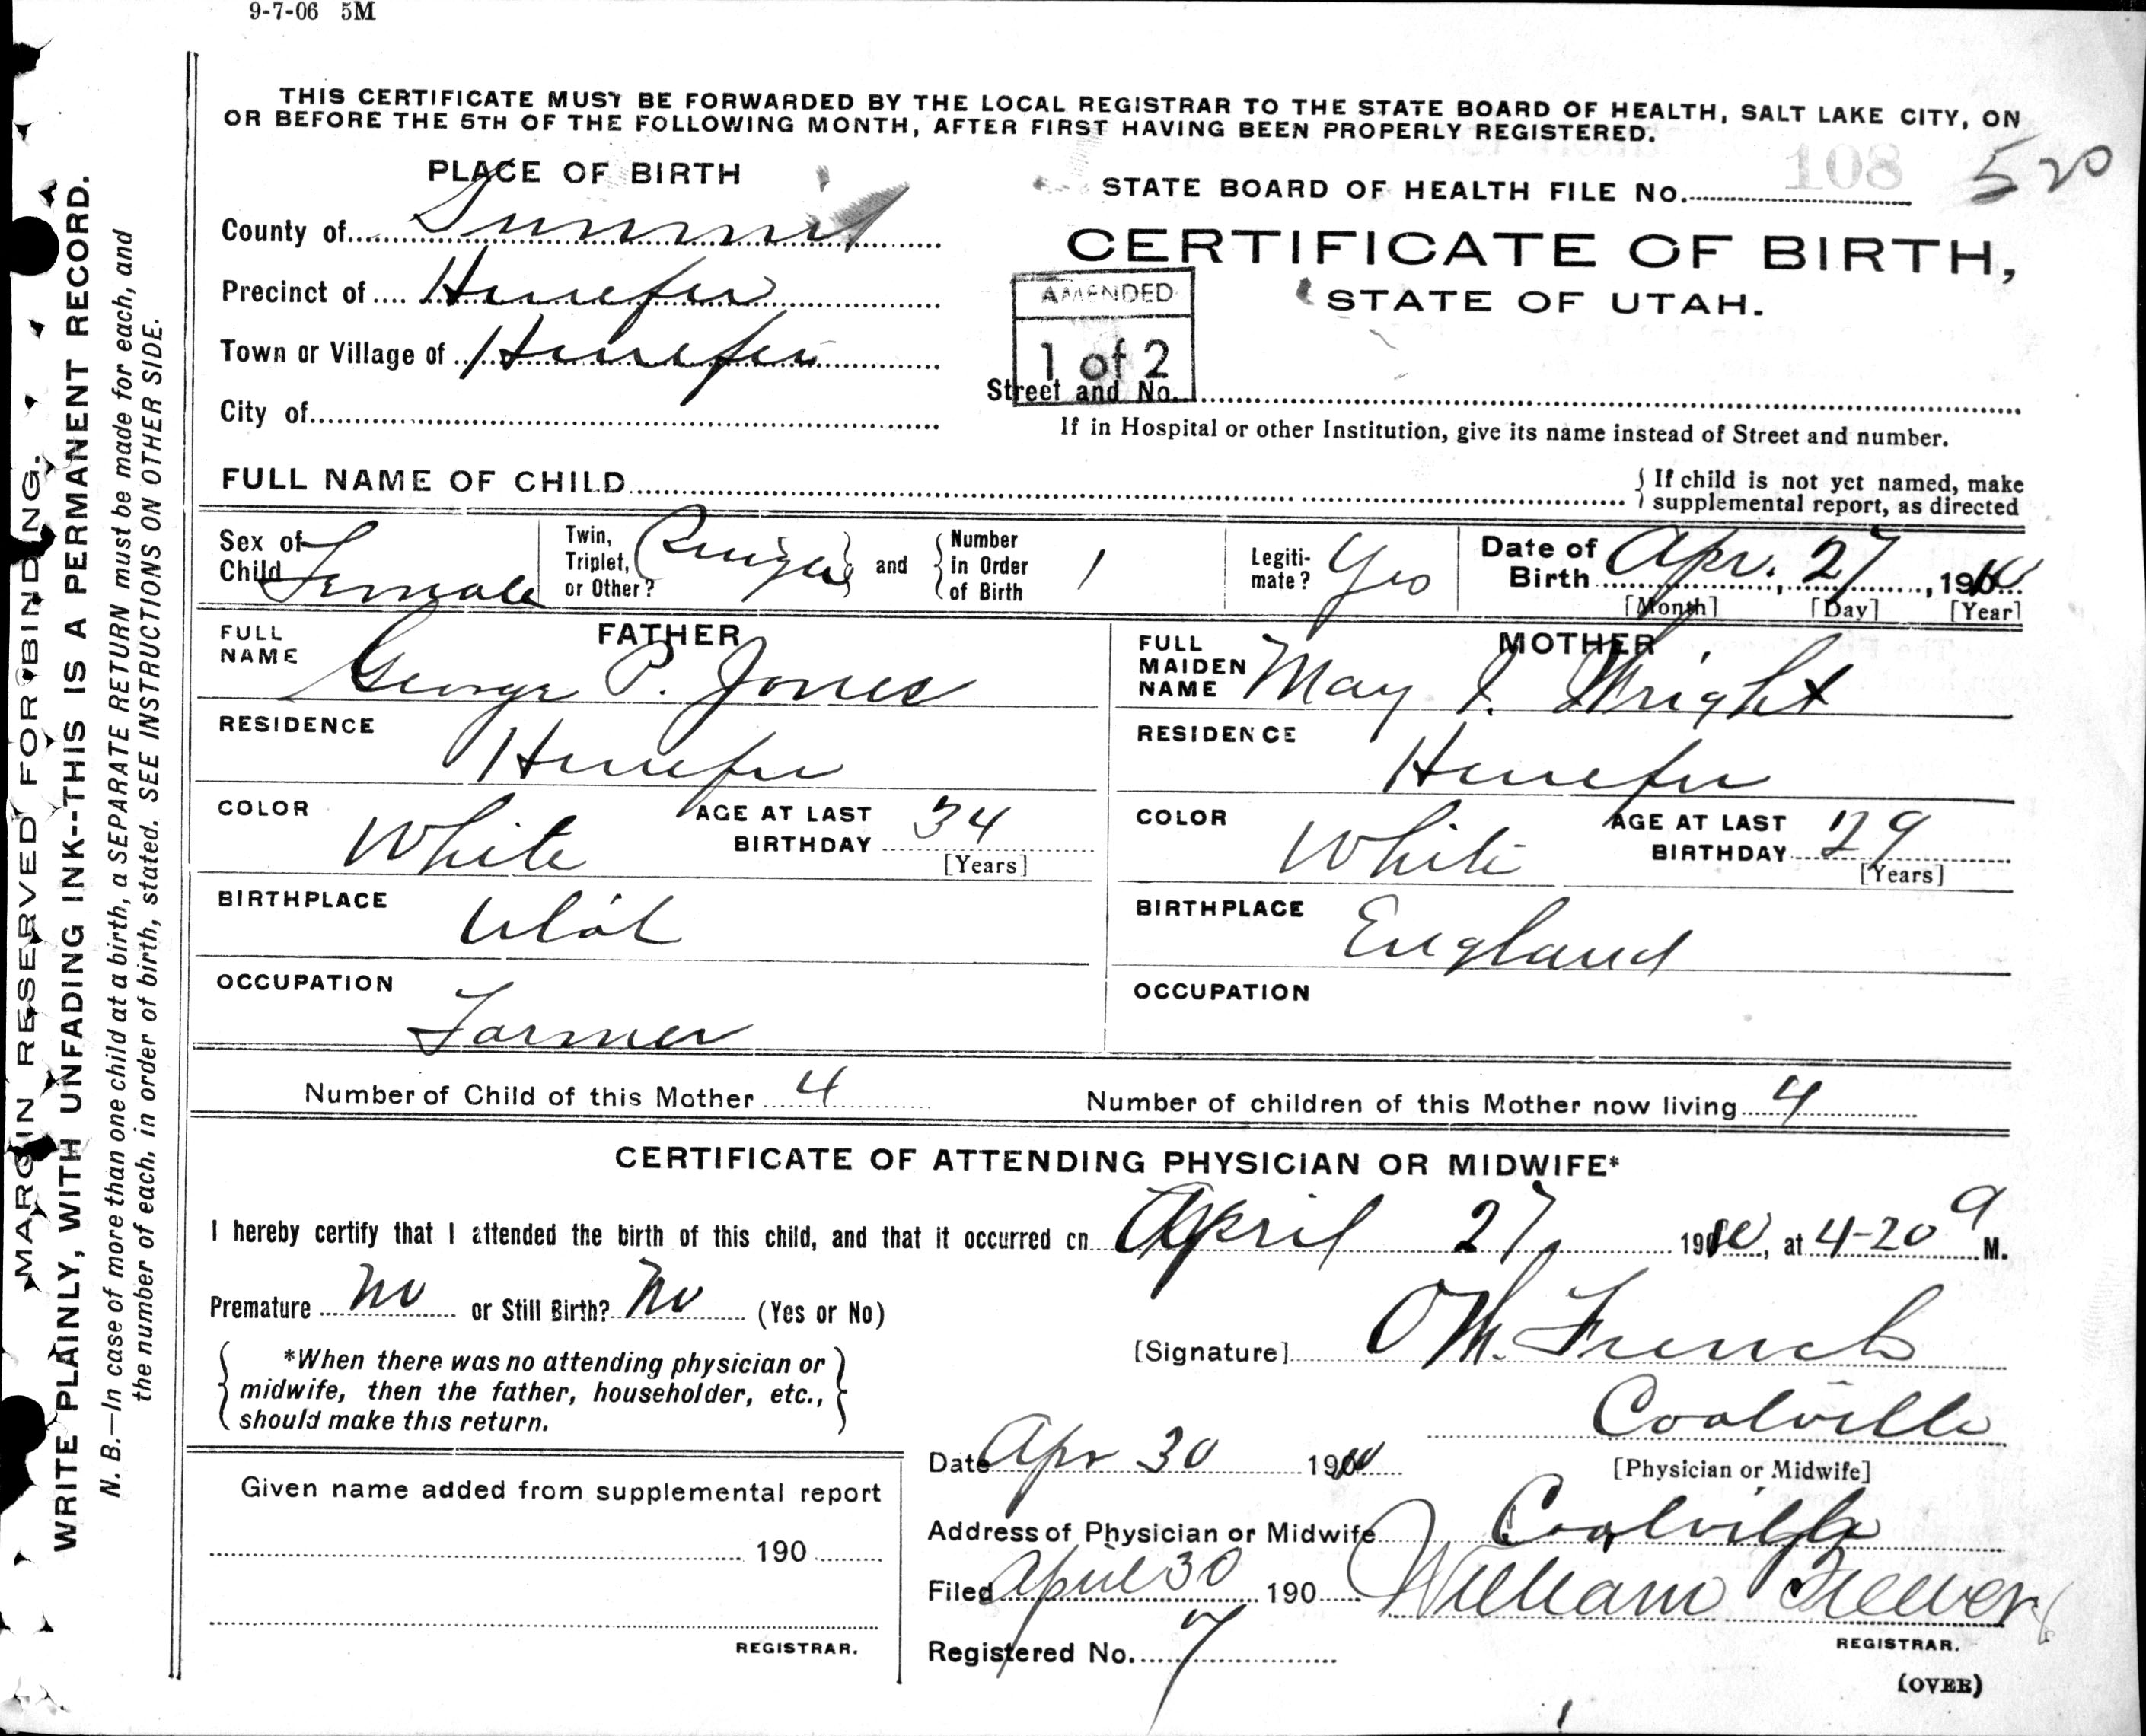 9-7-06 5M
THIS CERTIFICATE MUST BE FORWARDED BY THE LOCAL REGISTRAR TO THE STATE BOARD OF HEALTH, SALT LAKE CITY, ON
OR BEFORE THE 5TH OF THE FOLLOWING MONTH, AFTER FIRST HAVING BEEN PROPERLY REGISTERED.
PLACE OF BIRTH
County of Summit
Precinct of Henefer
Town or Village of Henefer
City of
STATE BOARD OF HEALTH FILE No. 108 520
CERTIFICATE OF BIRTH,
STATE OF UTAH.
AMENDED
1 of 2
Street and No.
If in Hospital or other Institution, give its name instead of Street and number.
FULL NAME OF CHILD
If child is not yet named, make
supplemental report, as directed
Sex of Child Female
Twin, Triplet, or Other?
and
Number in Order of Birth 1
Legitimate? Yes
Date of Birth Apr. 27, 1910
[Month] [Day] [Year]
FATHER
FULL NAME George P. Jones
RESIDENCE Henefer
COLOR White
AGE AT LAST BIRTHDAY 34
[Years]
BIRTHPLACE Utah
OCCUPATION Farmer
MOTHER
FULL MAIDEN NAME May I. Wright
RESIDENCE Henefer
COLOR White
AGE AT LAST BIRTHDAY 29
[Years]
BIRTHPLACE England
OCCUPATION
Number of Child of this Mother 4
Number of children of this Mother now living 4
CERTIFICATE OF ATTENDING PHYSICIAN OR MIDWIFE*
I hereby certify that I attended the birth of this child, and that it occurred on April 27, 1910, at 4-20 a M.
Premature no or Still Birth? no (Yes or No)
*When there was no attending physician or
midwife, then the father, householder, etc.,
should make this return.
[Signature] O M. French
Coalville
[Physician or Midwife]
Date Apr 30 1910
Address of Physician or Midwife Coalville
Filed April 30 190
William Brewer
REGISTRAR.
Registered No. 7
(OVER)
Given name added from supplemental report
190
REGISTRAR.
MARGIN RESERVED FOR BINDING.
WRITE PLAINLY, WITH UNFADING INK--THIS IS A PERMANENT RECORD.
N. B.—In case of more than one child at a birth, a SEPARATE RETURN must be made for each, and
the number of each, in order of birth, stated. SEE INSTRUCTIONS ON OTHER SIDE.